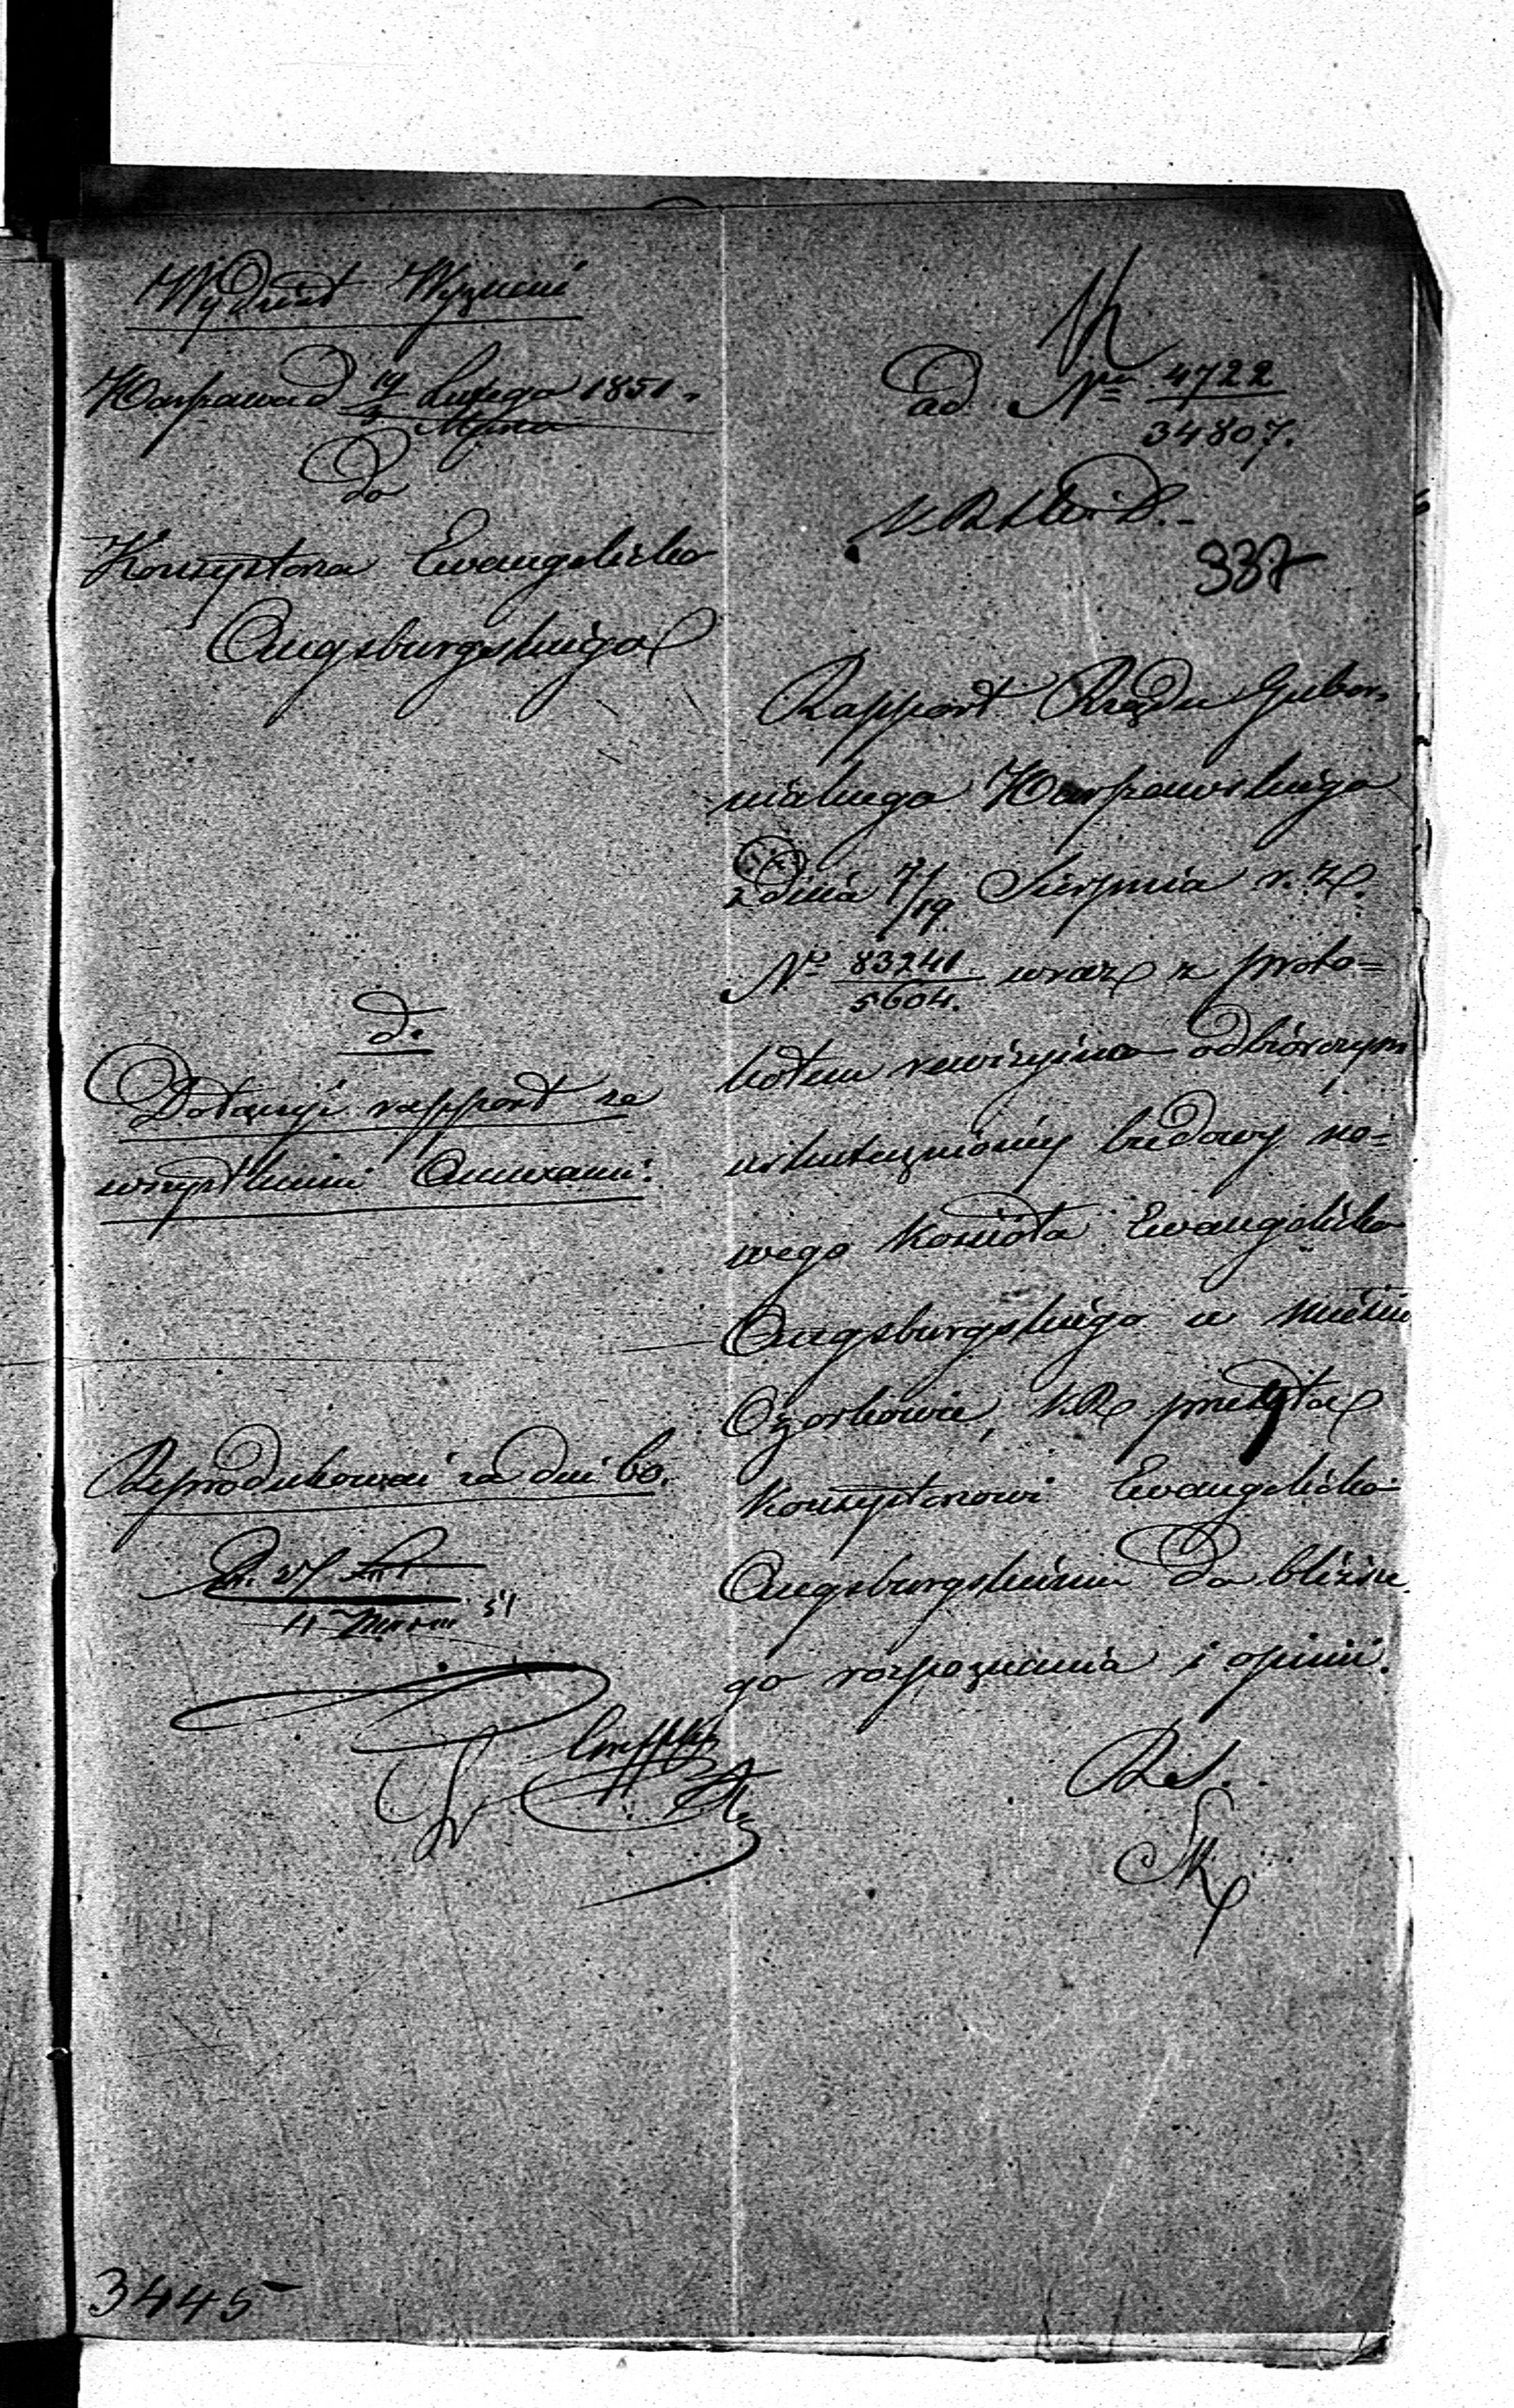 Wydział Wyznań
Warszawa d 19/3 Lutego/Marca 1851.
do
Konsystorza Ewangelicko
Augsburgskiego
d.
Dołączyć rapport ze
wszystkiemi Annexami.
Reprodukować za dni 60.
4 Marca 51
3445
ad No 4722/34807.
337
Rapport Rządu Guber-
nialnego Warszawskiego
z dnia 7/19 Sierpnia r. z.
No 83241/5604. wraz z proto-
kołem rewizyino odbiórczym
uskutecznioney budowy no-
wego Kościoła Ewangelicko
Augsburgskiego w mieście
Ozorkowie, KR przesyła
Konsystorzowi Ewangelicko
Augsburgskiemu do bliższe
go rozpoznania i opinii.